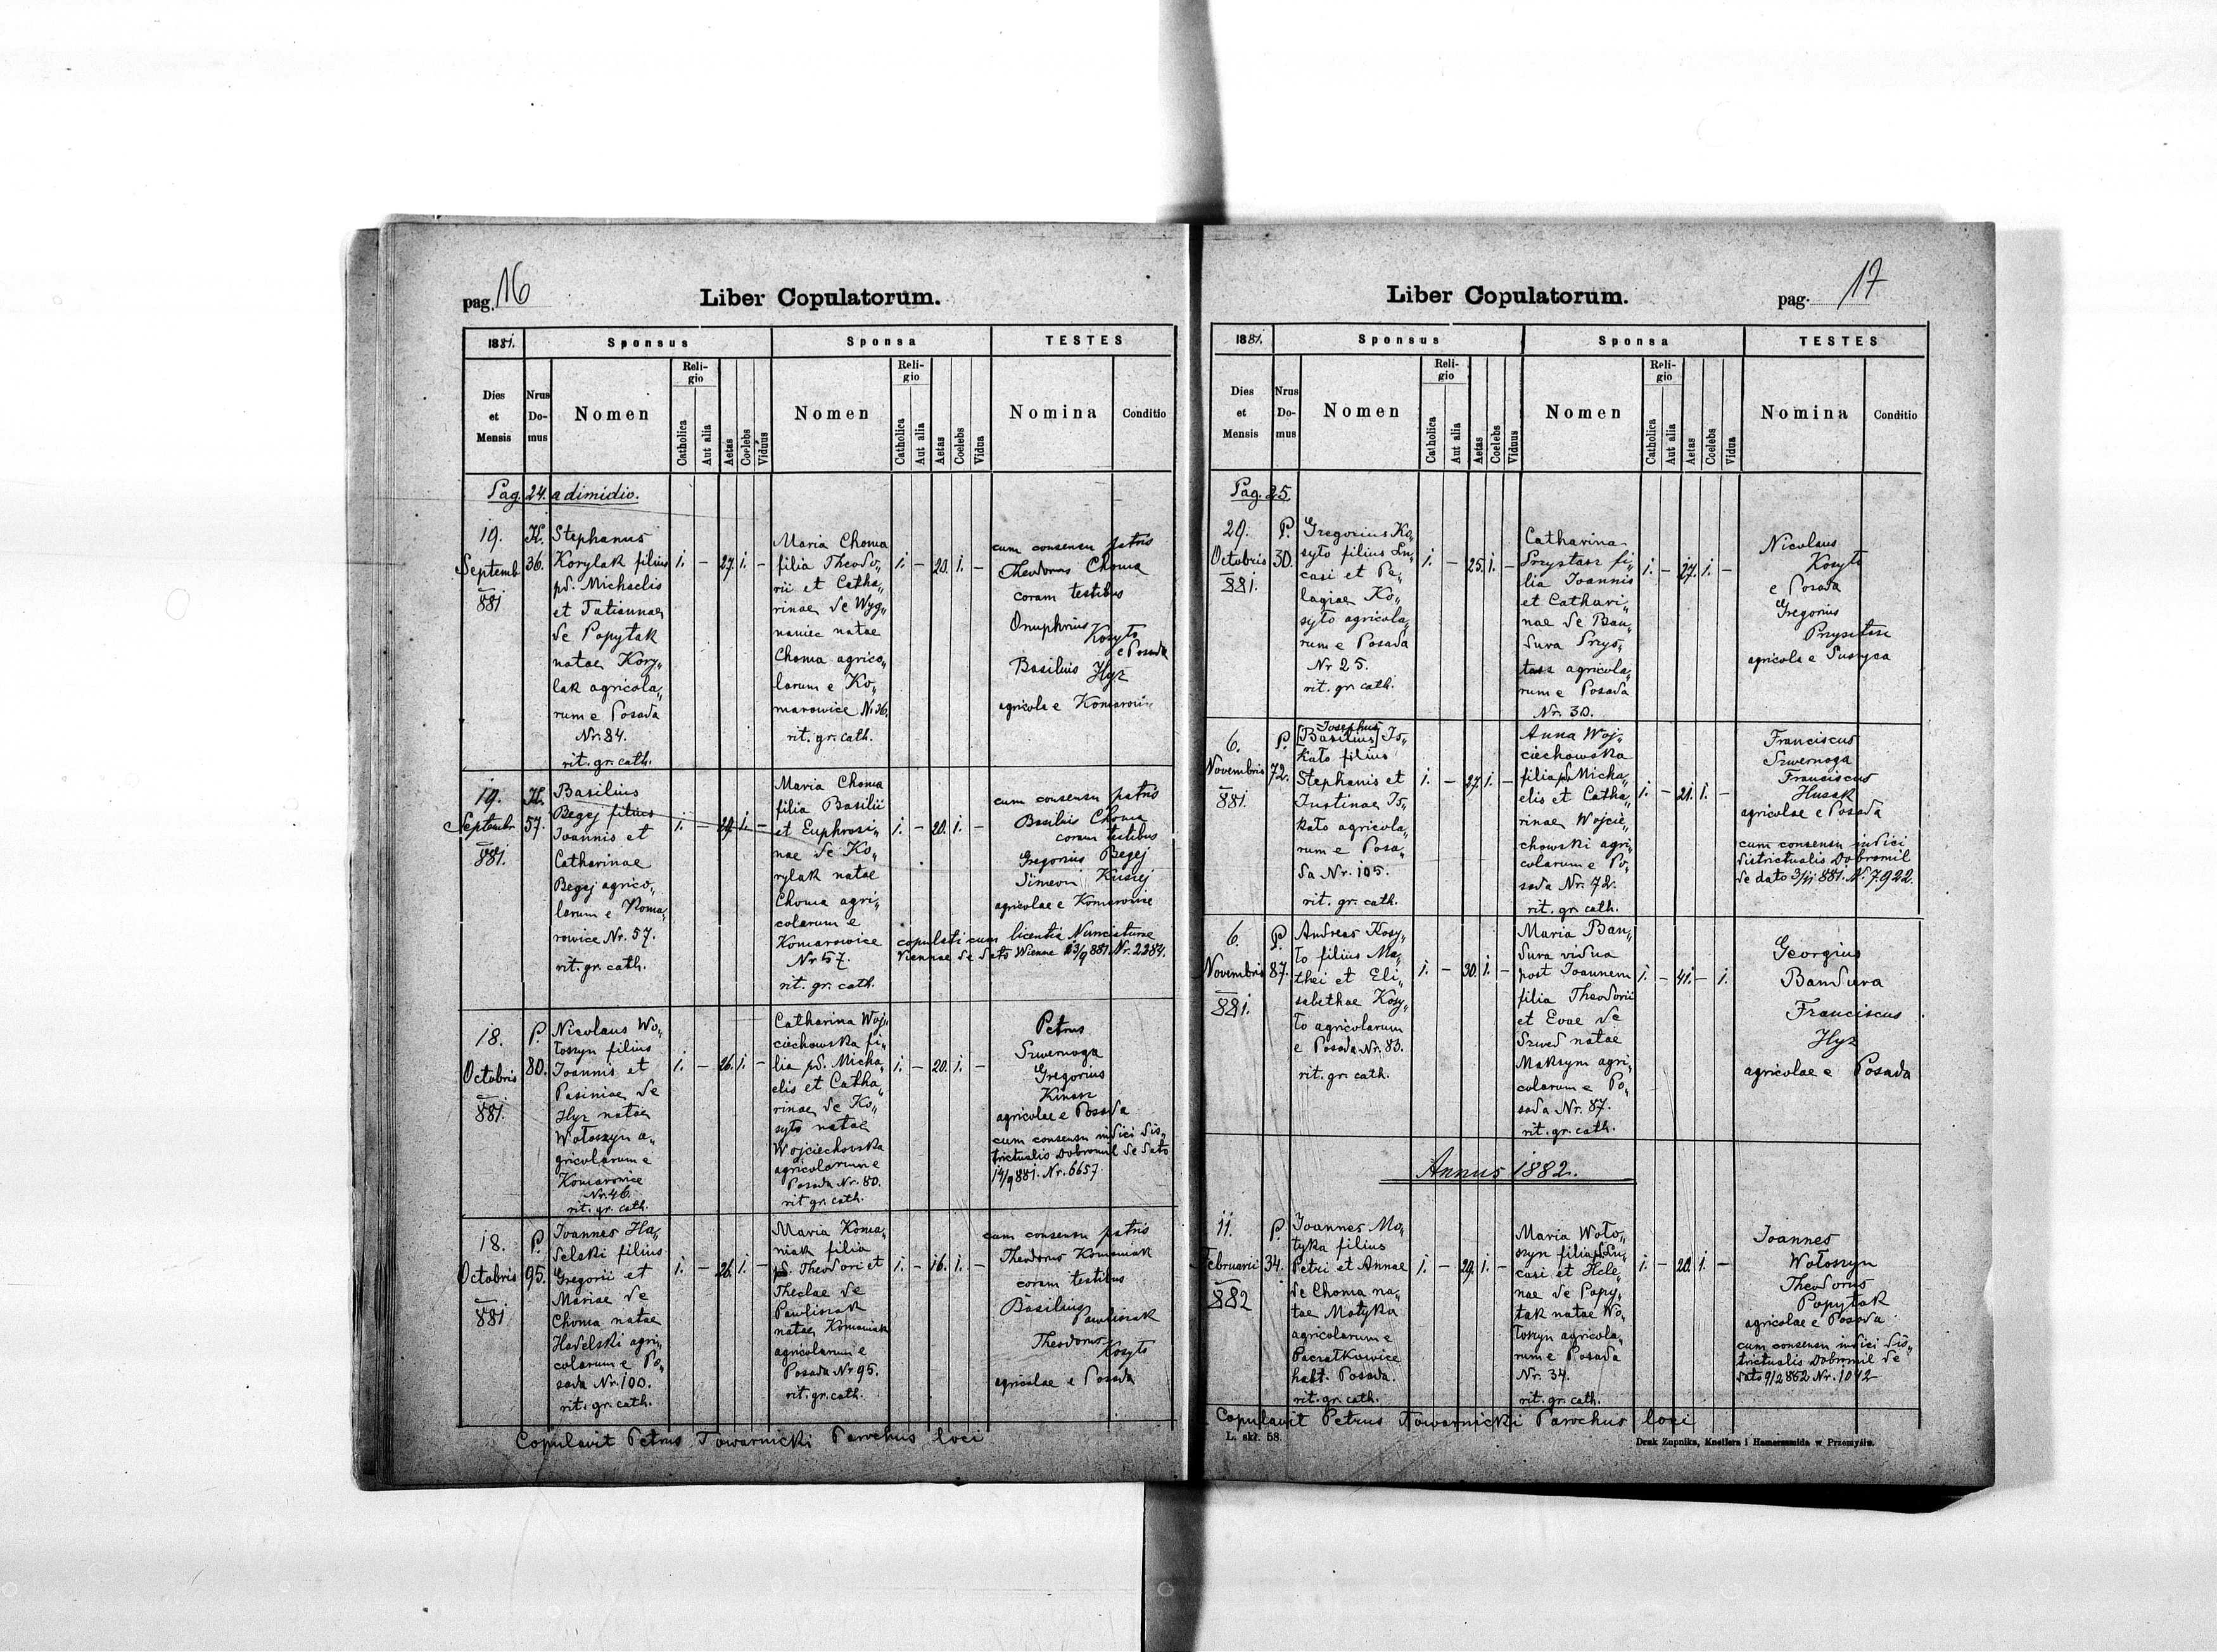 pag. 16
Liber Copulatorum.
1881.
Sponsus
Sponsa
TESTES
Dies
et
Mensis
Nrus
Do-
mus
Nomen
Reli-
gio
Catholica
Aut alia
Aetas
Coelebs
Viduus
Nomen
Reli-
gio
Catholica
Aut alia
Aetas
Coelebs
Vidua
Nomina
Conditio
Pag. 24. a dimidio.
19.
Septemb
881
K.
36.
Stephanus
Korylak filius
pd. Michaelis
et Tatiannae
de Popytak
natae Kory„
lak agricola„
rum e Posada
Nr. 84.
rit. gr. cath.
1. – 27. 1. –
Maria Choma
filia Theodo„
rii et Catha„
rinae de Wyg„
naniec natae
Choma agrico„
larum e Ko„
marowice Nr 36.
rit. gr. cath.
1. – 20. 1. –
cum consensu patris
Theodorus Choma
coram testibus
Onuphrius
Kosyto
e Posada
Basilius Hyz
agricolae Komarowi
19.
Septembr
881.
K.
57.
Basilius
Begej filius
Ioannis et
Catharinae
Begej agrico„
larum e Koma„
rowice Nr. 57.
rit. gr. cath.
1. – 29. 1. –
Maria Choma
filia Basilii
et Euphrosi„
nae de Ko„
rylak natae
Choma agri„
colarum e
Komarowice
Nr 57.
rit. gr. cath.
1. – 20. 1. –
cum consensu patris
Basilius Choma
coram testibus
Gregorius Begej
Simeon
agricolae e Komarowice
copulati cum licentia Nunciaturae
Viennae de dato Wienne 13/9 881. Nr. 2284.
18.
Octobris
881.
P.
80.
Nicolaus Wo„
łoszyn filius
Ioannis et
Pasiniae de
Hyz natae
Wołoszyn a„
gricolarum e
Komarowice
Nr. 46.
rit. gr. cath.
1. – 26. 1. –
Catharina Woj„
ciechowska fi„
lia pd. Micha„
elis et Catha„
rinae de Ko„
syto natae
Wojciechowska
agricolarum e
Posada Nr. 80.
rit gr. cath.
1. – 20. 1. –
Petrus
Szwernoga
Gregorius
Kinasz
agricolae e Posada
cum consensu iudici dis„
trictualis Dobromil de dato
14/9 881. Nr. 6657.
18.
Octobris
881
P.
95.
Ioannes Ha„
delski filius
Gregorii et
Mariae de
Choma natae
Hadelski agri„
colarum e Po„
sada Nr. 100.
rit. gr. cath.
1. – 26. 1. –
Maria Koma„
niak filia
pd. Theodori et
Theclae de
Pawlisiak
natae Komaniak
agricolarum e
Posada Nr 95.
rit. gr. cath.
1. – 16. 1. –
cum consensu patris
Theodorus Komaniak
coram testibus
Basilius
Pawlisiak
Theodorus
Kosyto
agricolae e Posada
Copulavit Petrus Towarnicki Parochus loci
Liber Copulatorum.
pag. 17
1881.
Sponsus
Sponsa
TESTES
Dies
et
Mensis
Nrus
Do-
mus
Nomen
Reli-
gio
Catholica
Aut alia
Aetas
Coelebs
Viduus
Nomen
Reli-
gio
Catholica
Aut alia
Aetas
Coelebs
Vidua
Nomina
Conditio
Pag. 25
29.
Octobris
881.
P.
30.
Gregorius Ko„
syto filius Lu„
casi et Pe„
lagiae Ko„
syto agricola„
rum e Posada
Nr 25.
rit. gr. cath.
1. – 25. 1. –
Catharina
Przystasz fi„
lia Ioannis
et Cathari„
nae de Ban„
dura Przys„
tasz agricola„
rum e Posada
Nr. 30.
1. – 27. 1. –
Nicolaus
Kosyto
e Posada
Gregorius
Przystasz
agricola e
6.
Novembris
881.
P.
72.
Iosephus
[Basilius] Is„
kato filius
Stephanis et
Iustinae Is„
kato agricola„
rum e Posa„
da Nr. 105.
rit. gr. cath.
1. – 27. 1. –
Anna Woj„
ciechowska
filia pd Micha„
elis et Catha„
rinae Wojcie„
chowski agri„
colarum e Po„
sada Nr. 72.
rit. gr. cath.
1. – 21. 1. –
Franciscus
Szwernoga
Franciscus
Husak
agricolae e Posada
cum consensu iudici
districtualis Dobromil
de dato 3/11 881. Nr. 7922.
6.
Novembris
881.
P.
87.
Andreas Kosy„
to filius Ma„
thei et Eli„
sabethae Kosy„
to agricolarum
e Posada Nr. 83.
rit. gr. cath.
1. – 30. 1. –
Maria Ban„
dura vidua
post Ioannem
filia Theodorii
et Evae de
Szwed natae
Maksym agri„
colarum e Po„
sada Nr. 87.
rit. gr. cath.
1. – 41. – 1.
Georgius
Bandura
Franciscus
Hyz
agricolae e Posada
Annus 1882.
11.
Februarii
882
P.
34.
Ioannes Mo„
tyka filius
Petri et Annae
de Choma na„
tae Motyka
agricolarum e
Pacratkowice
habt. Posada.
rit. gr. cath.
1. – 29. 1. –
Maria Woło„
szyn filia pd Lu„
casi et Hele„
nae de Popy„
tak natae Wo„
łoszyn agricola„
rum e Posada
Nr. 34.
rit. gr. cath.
1. – 20. 1. –
Ioannes
Wołoszyn
Theodorus
Popytak
agricolae e Posada
cum consensu iudici dis„
trictualis Dobromil de
dato 9/2 882 Nr. 1042
Copulavit Petrus Towarnicki Parochus loci
L. skł. 58.
Druk Żupnika, Knollera i Hamerszmida w Przemyślu.